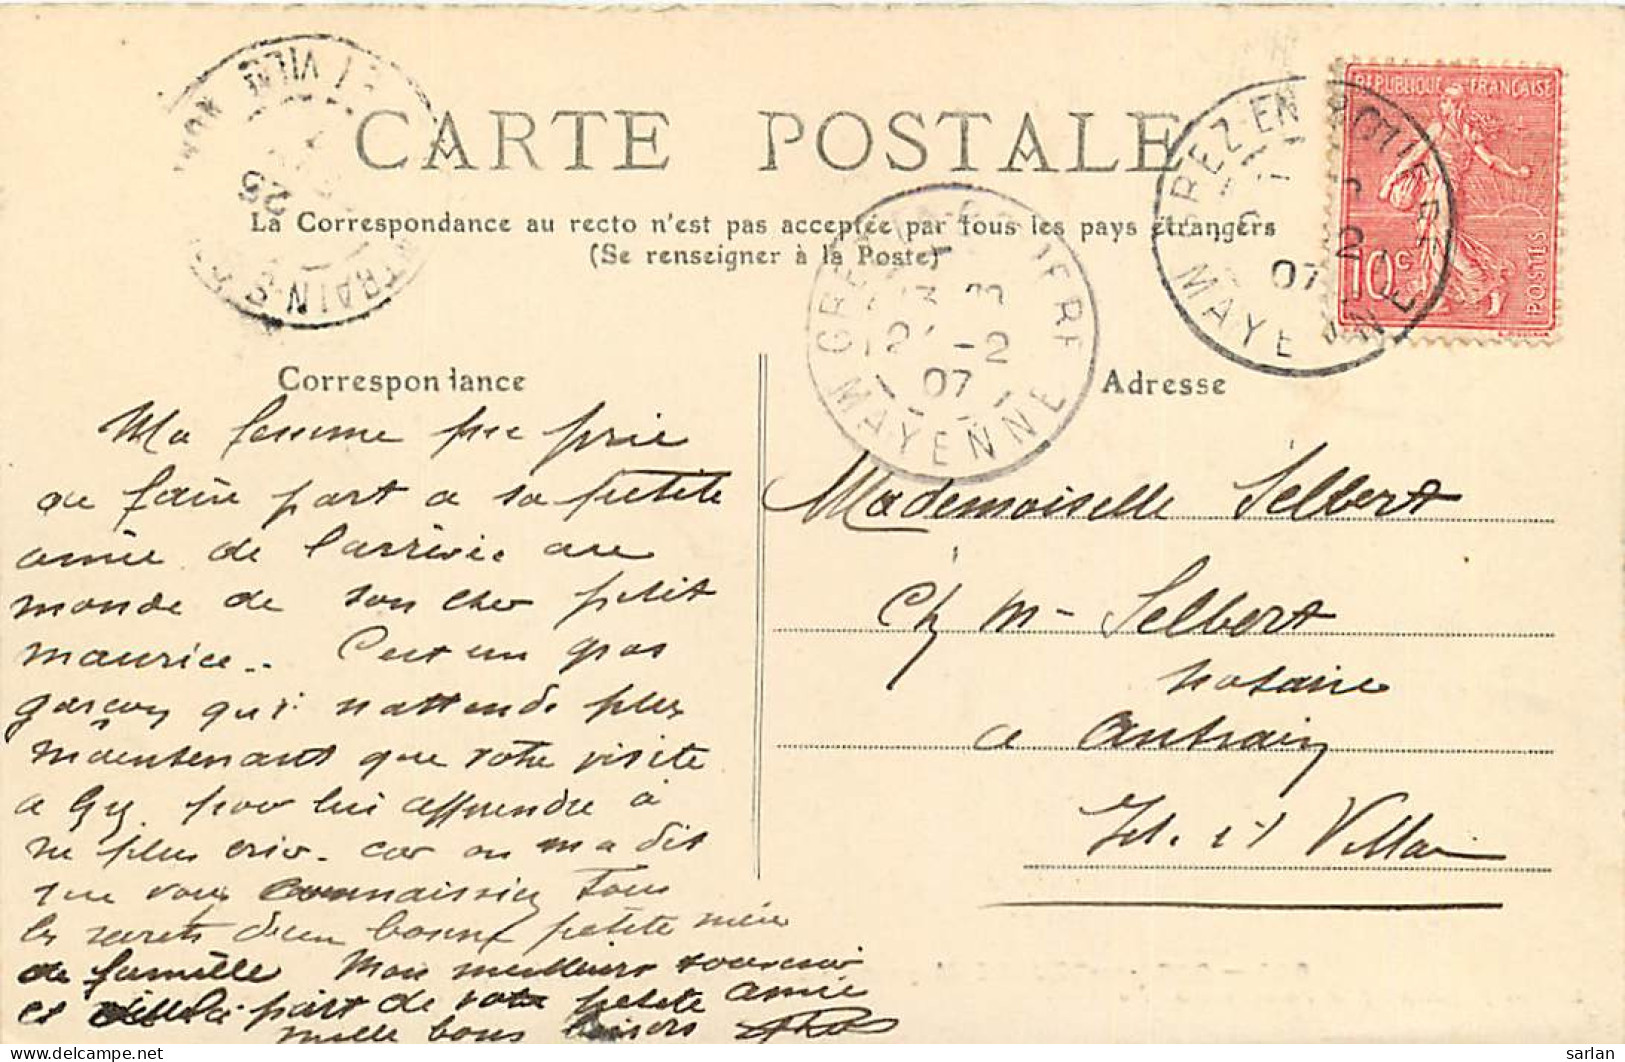 CARTE POSTALE
La Correspondance au recto n'est pas acceptée par tous les pays étrangers
(Se renseigner à la Poste)
REPUBLIQUE FRANÇAISE
10c
POSTES
GREZ EN BOUERE
2
07
MAYENNE
22 -2
07
MAYENNE
ANTRAIN-S
25
Correspondance
Ma femme me prie
de faire part a sa petite
amie de l'arrivée au
monde de son cher petit
maurice.. C'est un gros
garçon qui n'attend plus
maintenant que votre visite
a pour lui apprendre à
ne plus crier. car on m'a dit
que vous connaissiez Tous
les secrets d'une bonne petite mère
de famille Mon meilleur souvenir
et de la part de votre petite amie
mille bons baisers
Adresse
Mademoiselle Selbert
Ch M- Selbert
notaire
a Antrain
Ille et Villaine
sarlan